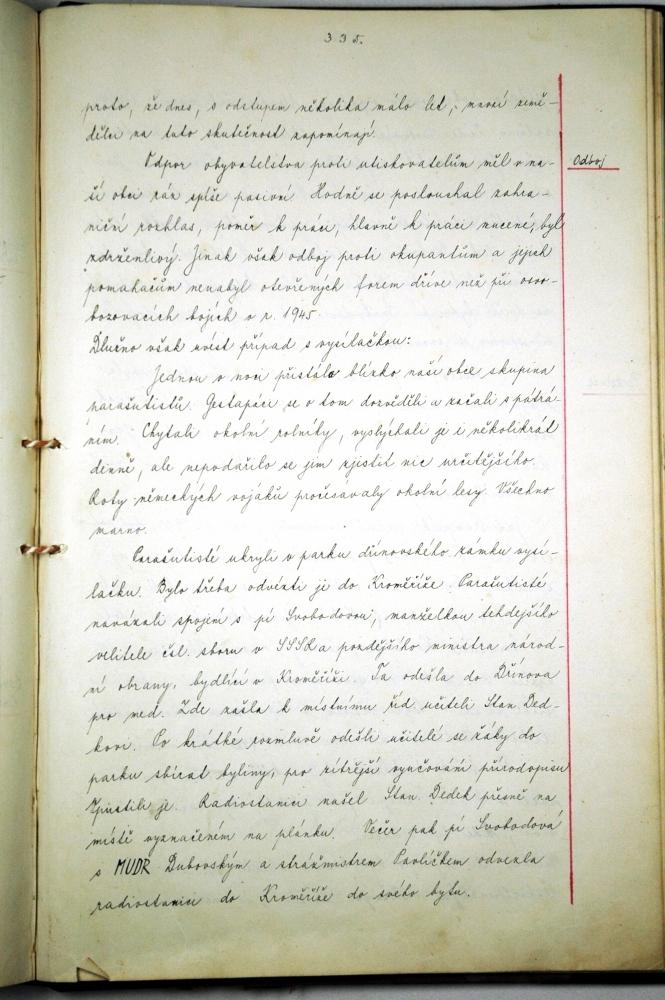 335.
proto, že dnes, s odstupem několika málo let, mnozí země-
dělci na tuto skutečnost zapomínají.
Odpor obyvatelstva proti utiskovatelům měl v na-
Odboj
ší obci ráz spíše pasivní. Hodně se poslouchal zahra-
niční rozhlas, poměr k práci, hlavně k práci nucené, byl
zdrženlivý. Jinak však odboj proti okupantům a jejich
pomahačům nenabyl otevřených forem dříve než při osvo-
bozovacích bojích v r. 1945.
Slušno však uvést případ s vysílačkou:
Jednou v noci přistála blízko naší obce skupina
parašutistů. Gestapáci se o tom dozvěděli a začali s pátrá-
ním. Chytali okolní rolníky, vyslýchali je i několikrát
denně, ale nepodařilo se jim zjistit nic určitějšího.
Roty německých vojáků pročesávaly okolní lesy. Všechno
marno.
Parašutisté ukryli v parku dřínovského zámku vysí-
lačku. Bylo třeba odvézti ji do Kroměříže. Parašutisté
navázali spojení s pí Svobodovou, manželkou tehdejšího
velitele čsl. sboru v SSSR a pozdějšího ministra národ-
ní obrany, bydlící v Kroměříži. Ta odešla do Dřínova
pro med. Zde zašla k místnímu říd. učiteli Stan. Ded-
kovi. Po krátké rozmluvě odešli učitelé se žáky do
parku sbírat byliny, pro zítřejší vyučování přírodopisu
zjistili je. Radiostanici našel Stan. Dedek přesně na
místě vyznačeném na plánku. Večer pak pí Svobodová
s MUDR Dubovským a strážmistrem Pavlíčkem odvezla
radiostanici do Kroměříže do svého bytu.